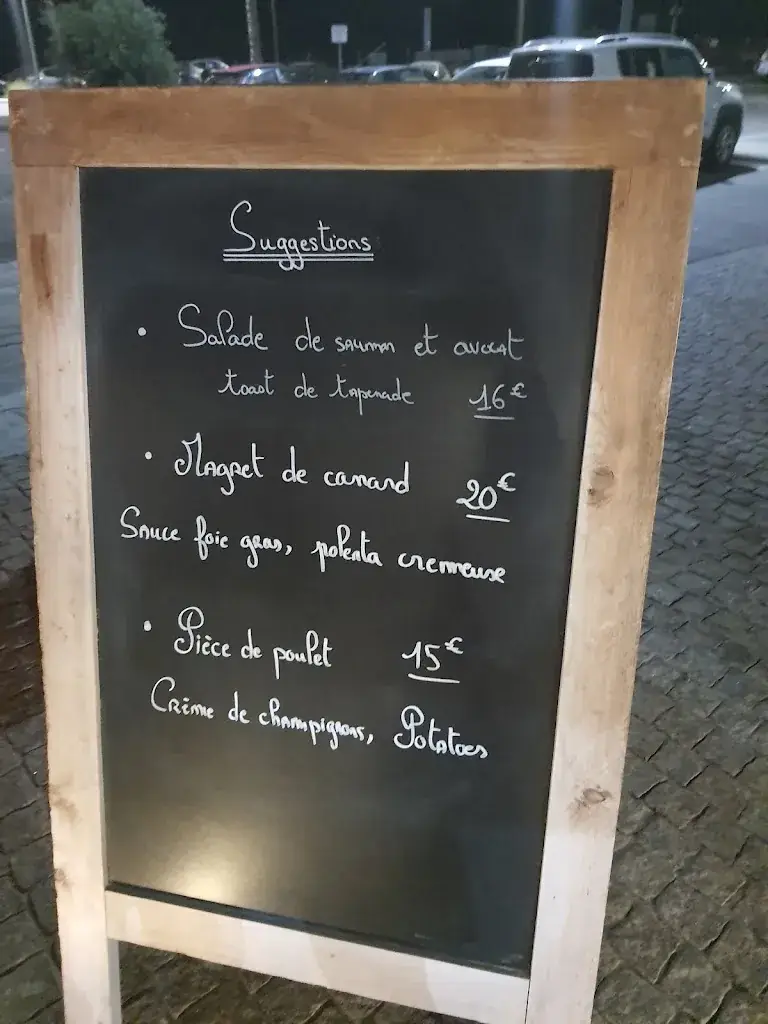 Suggestions
• Salade de saumon et avocat
toast de tapenade 16€
• Magret de canard 20€
Sauce foie gras, polenta cremeuse
• Pièce de poulet 15€
Crème de champignons, Potatoes